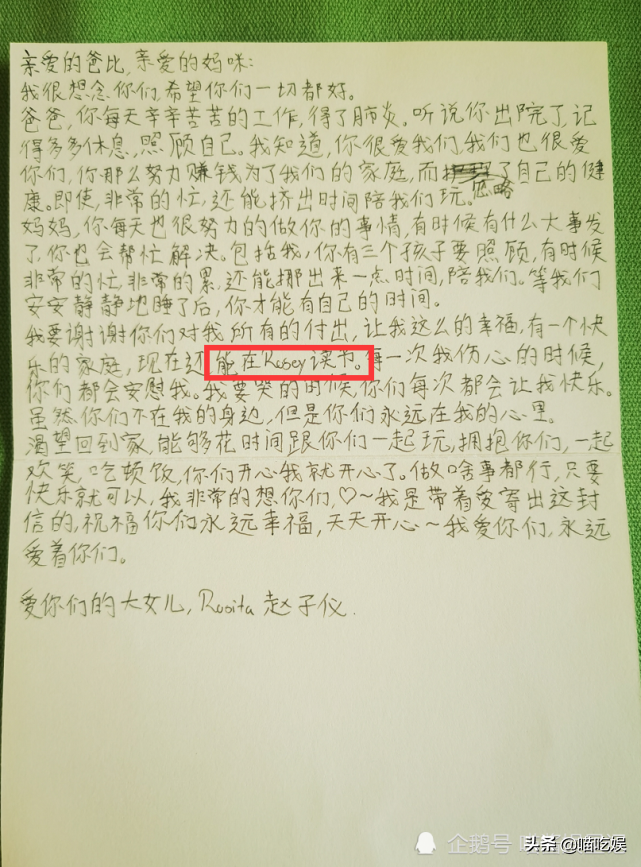 亲爱的爸比，亲爱的妈咪：
我很想念你们，希望你们一切都好。
爸爸，你每天辛辛苦苦的工作，得了肺炎。听说你出院了，记
得多多休息，照顾自己。我知道，你很爱我们，我们也很爱
你们，你那么努力赚钱为了我们的家庭，而忽略了自己的健
康。即使，非常的忙，还能挤出时间陪我们玩。
妈妈，你每天也很努力的做你的事情，有时候有什么大事发
了，你也会帮忙解决。包括我，你有三个孩子要照顾，有时候
非常的忙，非常的累，还能挪出来一点时间，陪我们。等我们
安安静静地睡了后，你才能有自己的时间。
我要谢谢你们对我所有的付出，让我这么的幸福，有一个快
乐的家庭，现在还能在Rosey读书。每一次我伤心的时候，
你们都会安慰我。我要哭的时候，你们每次都会让我快乐。
虽然你们不在我的身边，但是你们永远在我的心里。
渴望回到家，能够花时间跟你们一起玩，拥抱你们，一起
欢笑，吃顿饭，你们开心我就开心了。做啥事都行，只要
快乐就可以，我非常的想你们，♡～我是带着爱寄出这封
信的，祝福你们永远幸福，天天开心～我爱你们，永远
爱着你们。
爱你们的大女儿，Rosita 赵子仪.
企鹅号
头条 @喵吃娱